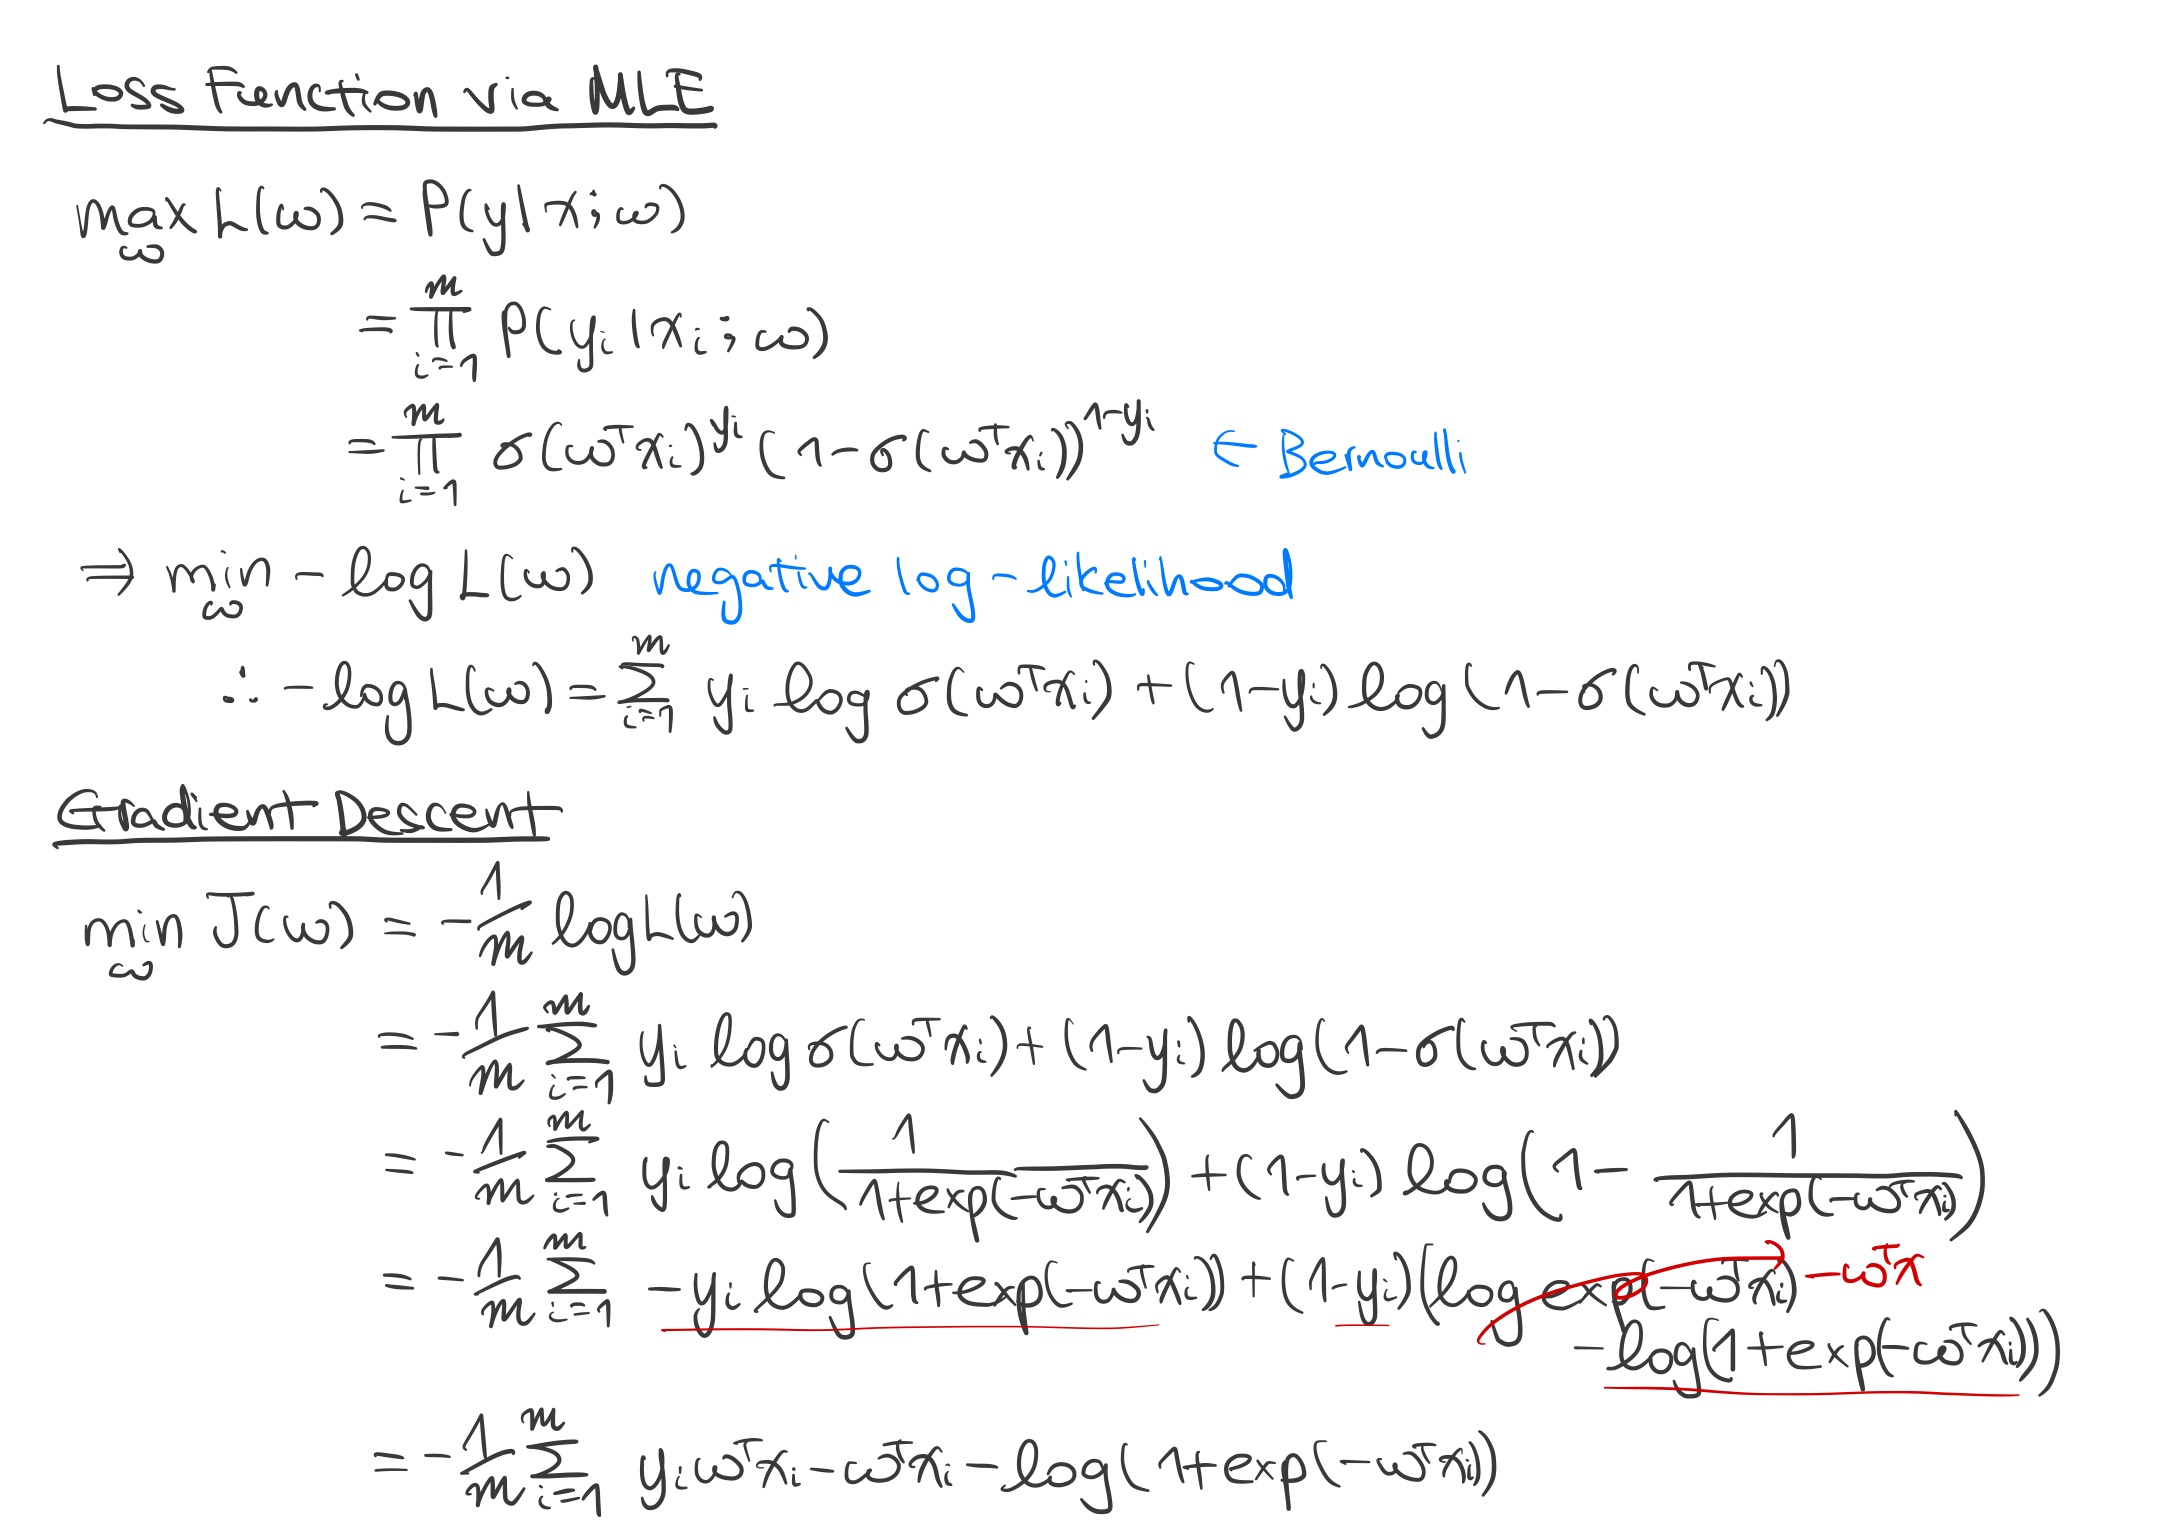 Loss Function via MLE
max_ω L(ω) = P(y|x;ω)
= ∏_{i=1}^{m} P(y_i|x_i;ω)
= ∏_{i=1}^{m} σ(ω^T x_i)^{y_i} (1-σ(ω^T x_i))^{1-y_i} ← Bernoulli
⇒ min_ω - log L(ω) negative log-likelihood
∴ -log L(ω) = ∑_{i=1}^{m} y_i log σ(ω^T x_i) + (1-y_i) log(1-σ(ω^T x_i))
Gradient Descent
min_ω J(ω) = -1/m log L(ω)
= -1/m ∑_{i=1}^{m} y_i log σ(ω^T x_i) + (1-y_i) log(1-σ(ω^T x_i))
= -1/m ∑_{i=1}^{m} y_i log(1/(1+exp(-ω^T x_i))) + (1-y_i) log(1 - 1/(1+exp(-ω^T x_i)))
= -1/m ∑_{i=1}^{m} -y_i log(1+exp(-ω^T x_i)) + (1-y_i)(log exp(-ω^T x_i) -ω^T x
-log(1+exp(-ω^T x_i)))
= -1/m ∑_{i=1}^{m} y_i ω^T x_i - ω^T x_i - log(1+exp(-ω^T x_i))